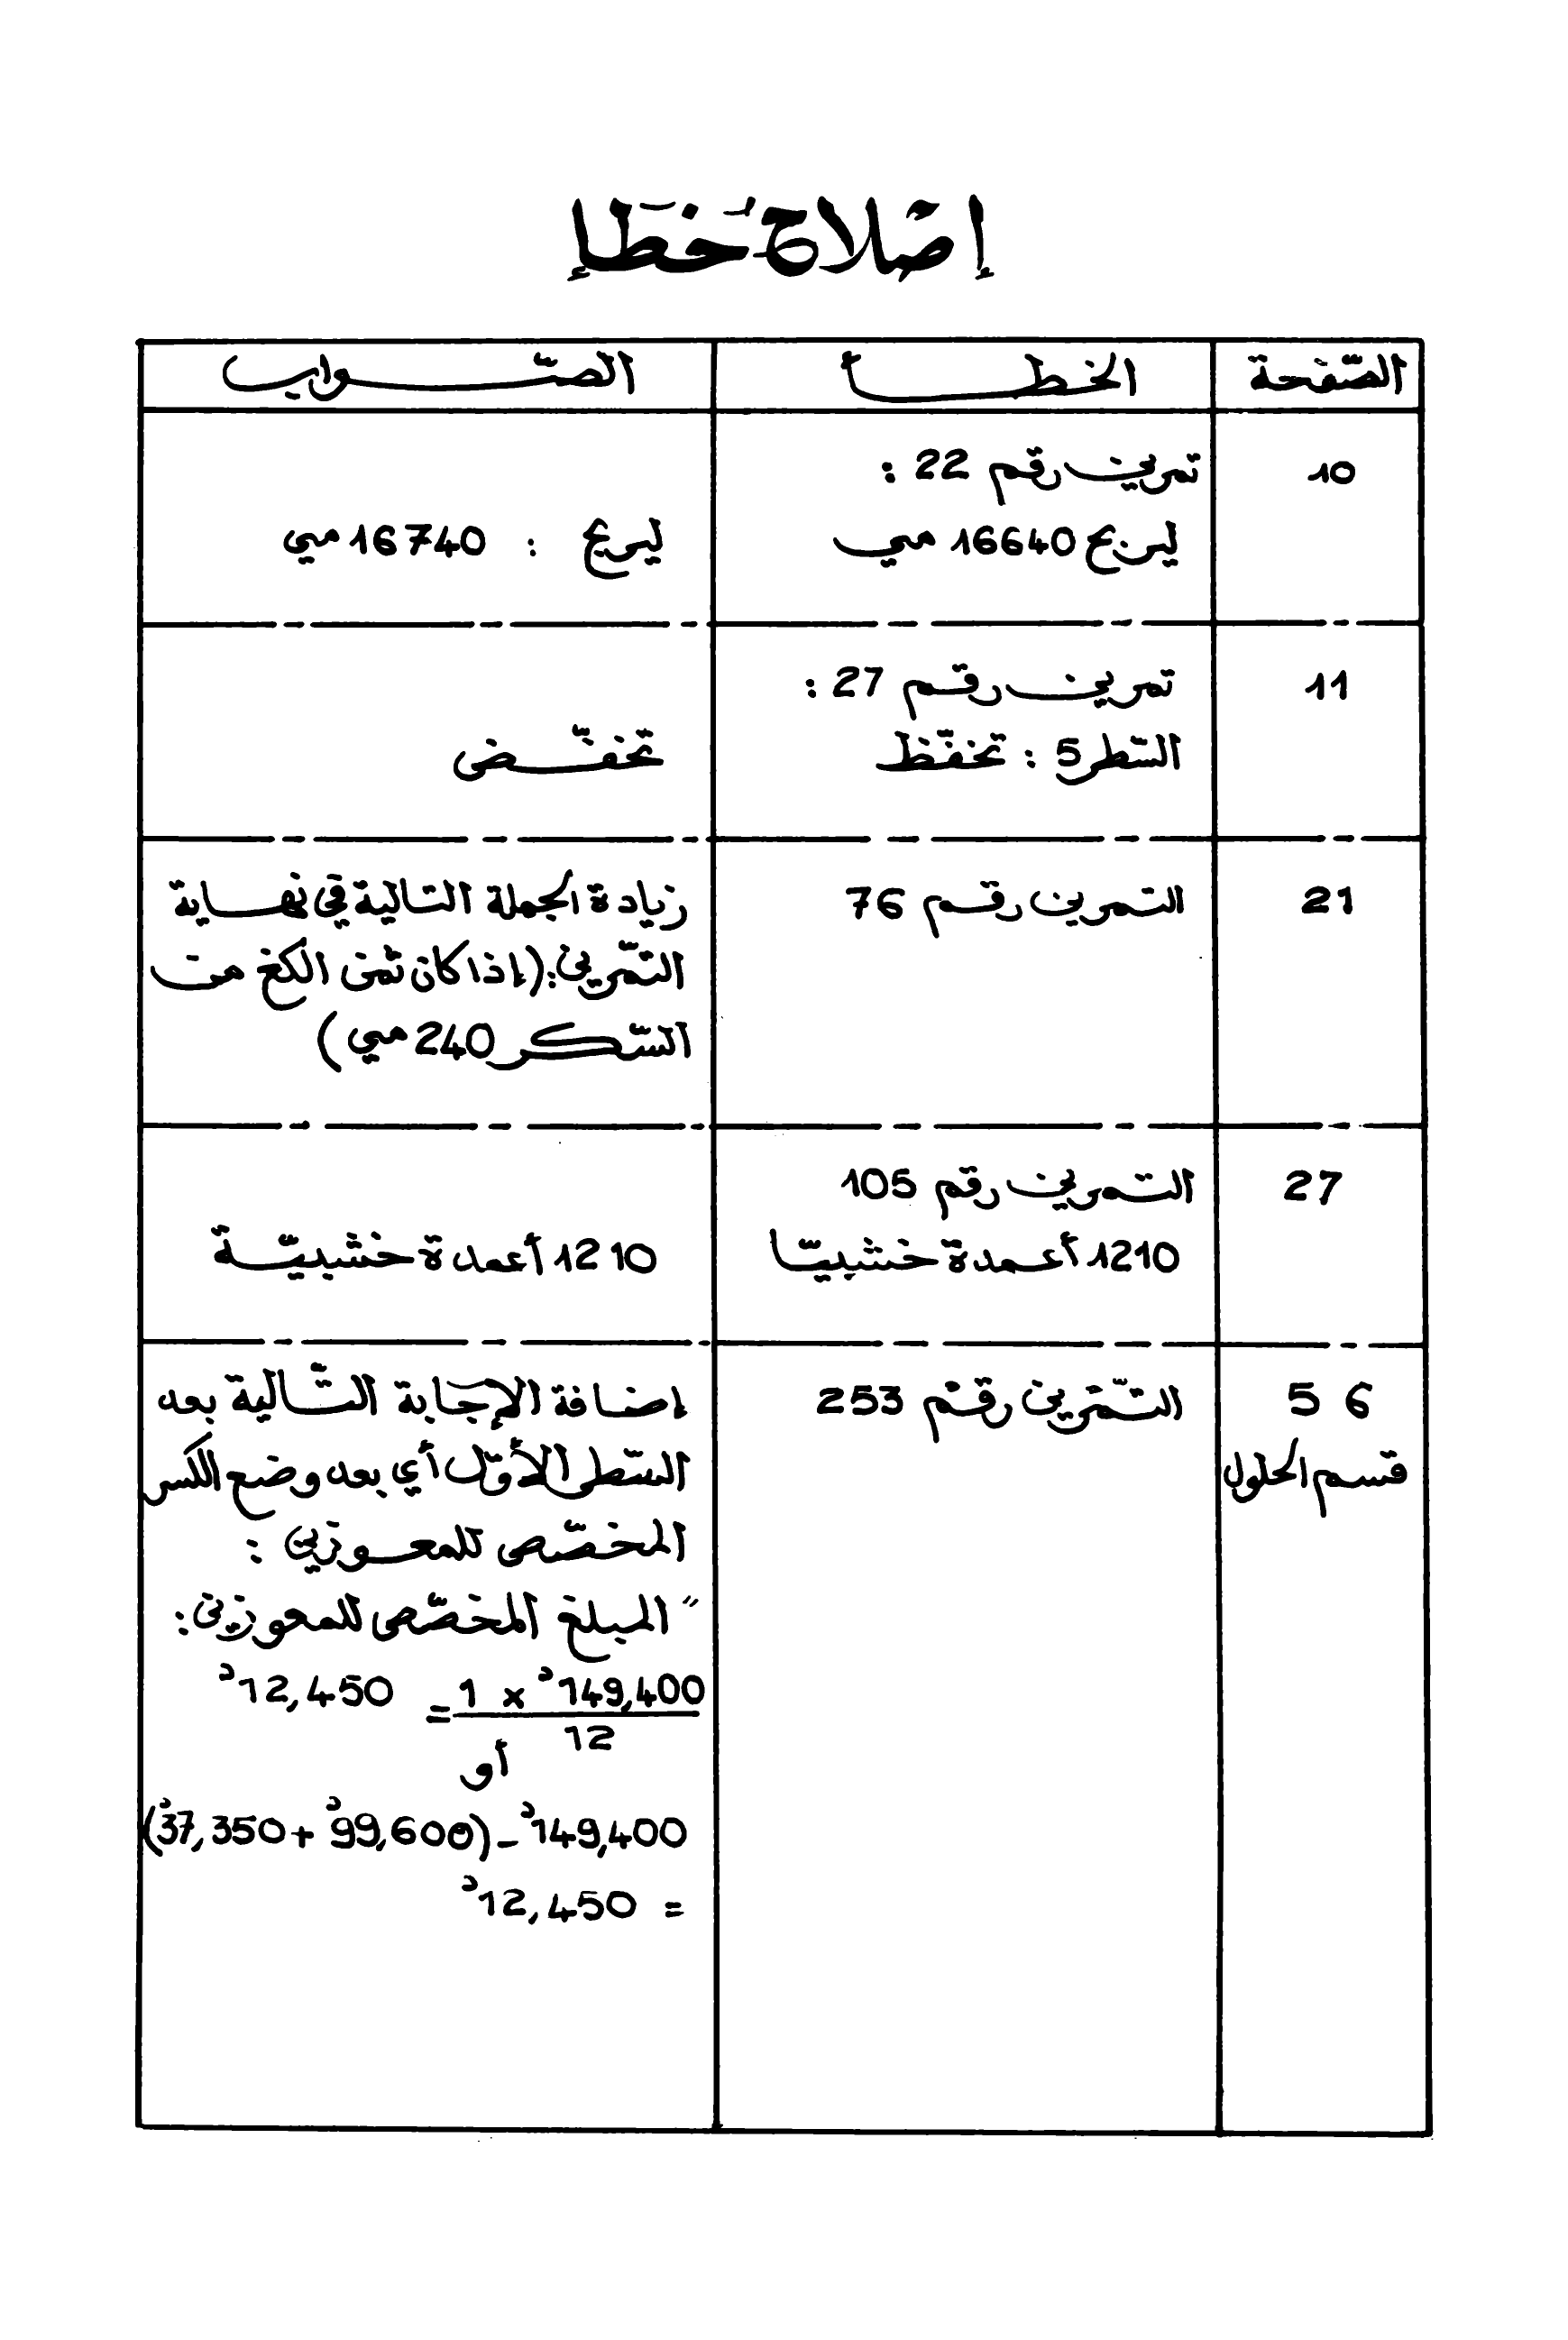 إصْلاحُ خَطَإ
الصّفحة
الخطأ
الصّواب
10
تمرين رقم 22 :
ليربح 16640 مي
ليربح : 16740 مي
11
تمرين رقم 27 :
السّطر 5 : تخفّظ
تخفّض
21
التمرين رقم 76
زيادة الجملة التالية في نهاية
التمّرين : (إذا كان ثمن الكغ من
السّكر 240 مي)
27
التمرين رقم 105
1210 أعمدة خشبيّا
1210 أعمدة خشبيّة
56
قسم الحلول
التّمرين رقم 253
إضافة الإجابة التّالية بعد
السّطر الأوّل أي بعد وضع الكسر
المخصّص للمعوزين :
" المبلغ المخصّص للمعوزين :
149,400د x 1 = 12,450د
12
أو
149,400د - (99,600د + 37,350د)
= 12,450د